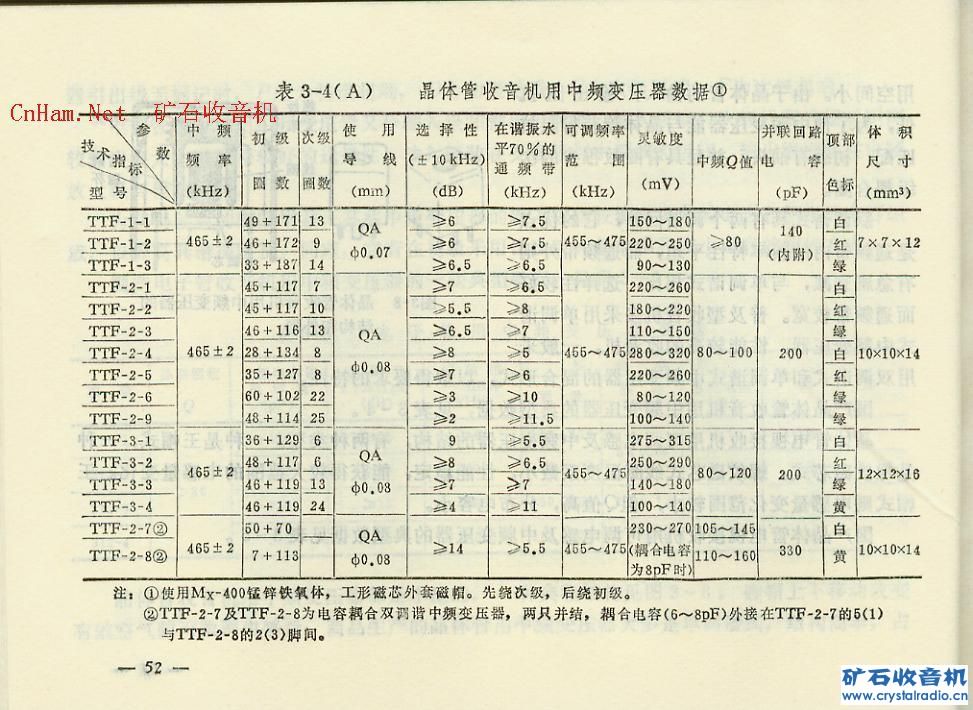 表3-4(A) 晶体管收音机用中频变压器数据①
CnHam.Net 矿石收音机
参数 技术指标 型号 中频频率(kHz) 初级圈数 次级圈数 使用导线(mm) 选择性(±10kHz)(dB) 在谐振水平70%的通频带(kHz) 可调频率范围(kHz) 灵敏度(mV) 中频Q值 并联回路电容(pF) 顶部色标 体积尺寸(mm³)
TTF-1-1 49+171 13 ≥6 ≥7.5 150~180 白
TTF-1-2 465±2 46+172 9 QA φ0.07 ≥6 ≥7.5 455~475 220~250 ≥80 140(内附) 红 7×7×12
TTF-1-3 33+187 14 ≥6.5 ≥6.5 90~130 绿
TTF-2-1 45+117 7 ≥7 ≥6.5 220~260 白
TTF-2-2 45+117 10 ≥5.5 ≥8 180~220 红
TTF-2-3 46+116 13 QA ≥6.5 ≥7 110~150 绿
TTF-2-4 465±2 28+134 8 ≥8 ≥5 455~475 280~320 80~100 200 白 10×10×14
TTF-2-5 35+127 8 φ0.08 ≥7 ≥6 220~260 红
TTF-2-6 60+102 22 ≥3 ≥10 80~120 绿
TTF-2-9 48+114 25 ≥2 ≥11.5 100~140 绿
TTF-3-1 36+129 6 9 ≥5.5 275~315 白
TTF-3-2 465±2 48+117 6 QA ≥8 ≥6.5 455~475 250~290 80~120 200 红 12×12×16
TTF-3-3 46+119 13 φ0.08 ≥7 ≥7 140~180 绿
TTF-3-4 46+119 24 ≥4 ≥11 100~140 黄
TTF-2-7② 50+70 QA 230~270 105~145 白
TTF-2-8② 465±2 7+113 φ0.08 ≥14 ≥5.5 455~475 (耦合电容为8pF时) 110~160 330 黄 10×10×14
注：①使用Mx-400锰锌铁氧体，工形磁芯外套磁帽。先绕次级，后绕初级。
②TTF-2-7及TTF-2-8为电容耦合双调谐中频变压器，两只并结，耦合电容(6~8pF)外接在TTF-2-7的5(1)
与TTF-2-8的2(3)脚间。
— 52 —
矿石收音机
www.crystalradio.cn